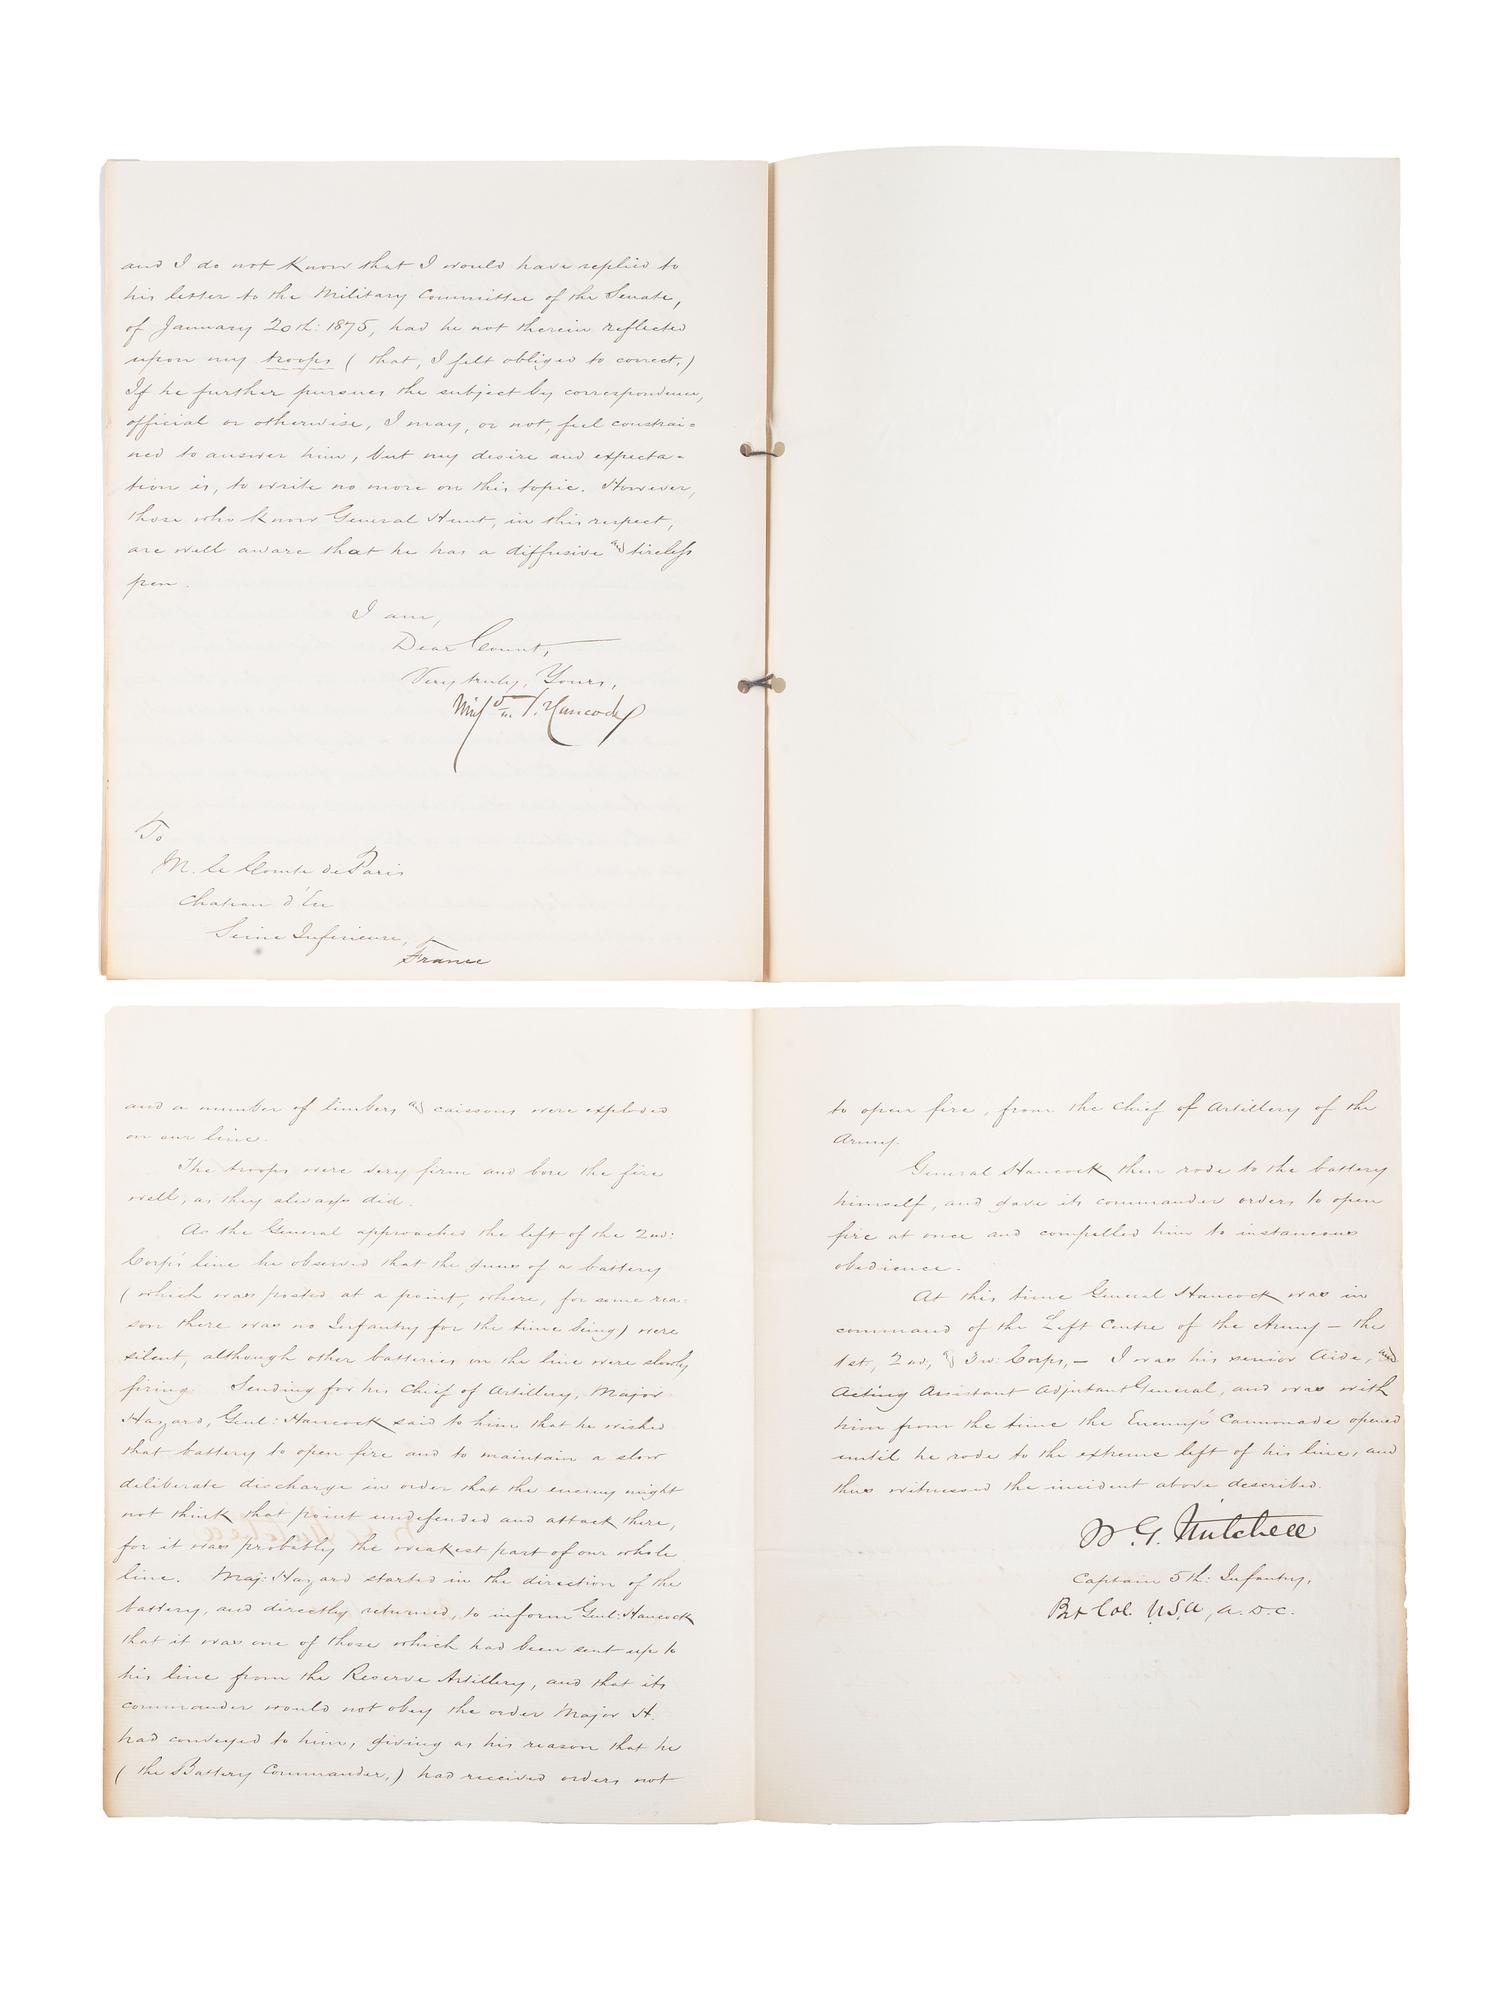 and I do not know that I would have replied to
his letter to the Military Committee of the Senate,
of January 20th: 1875, had he not therein reflected
upon my troops ( that, I felt obliged to correct.)
If he further pursues the subject by correspondence,
official or otherwise, I may, or not, feel constrai=
ned to answer him, but my desire and expecta=
tion is, to write no more on this topic. However,
those who know General Hunt, in this respect,
are well aware that he has a diffusive and tireless
pen.
I am,
Dear Count,
Very truly, Yours,
Winf'd S. Hancock
To
M. le Comte de Paris
Chateau d'Eu
Seine Inferieure,
France
and a number of limbers and caissons were exploded
on our line.
The troops were very firm and bore the fire
well, as they always did.
As the General approached the left of the 2nd:
Corps' line he observed that the guns of a battery
( which was posted at a point, where, for some rea=
son there was no Infantry for the time being) were
silent, although other batteries on the line were slowly
firing. Sending for his Chief of Artillery, Major
Hazard, Genl: Hancock said to him that he wished
that battery to open fire and to maintain a slow
deliberate discharge in order that the enemy might
not think that point undefended and attack there,
for it was probably the weakest part of our whole
line. Maj: Hazard started in the direction of the
battery, and directly returned, to inform Genl: Hancock
that it was one of those which had been sent up to
his line from the Reserve Artillery, and that its
commander would not obey the order Major H.
had conveyed to him, giving as his reason that he
( the Battery Commander,) had received orders not
to open fire, from the Chief of Artillery of the
Army.
General Hancock then rode to the battery
himself, and gave its commander orders to open
fire at once and compelled him to instantaneous
obedience.
At this time General Hancock was in
command of the Left Centre of the Army – the
1st, 2nd, and 3rd: Corps, – I was his senior Aide, and
Acting Assistant Adjutant General, and was with
him from the time the Enemy's Cannonade opened
until he rode to the extreme left of his line, and
thus witnessed the incident above described.
W. G. Mitchell
Captain 5th: Infantry,
Bvt Col. U.S.A, A.D.C.